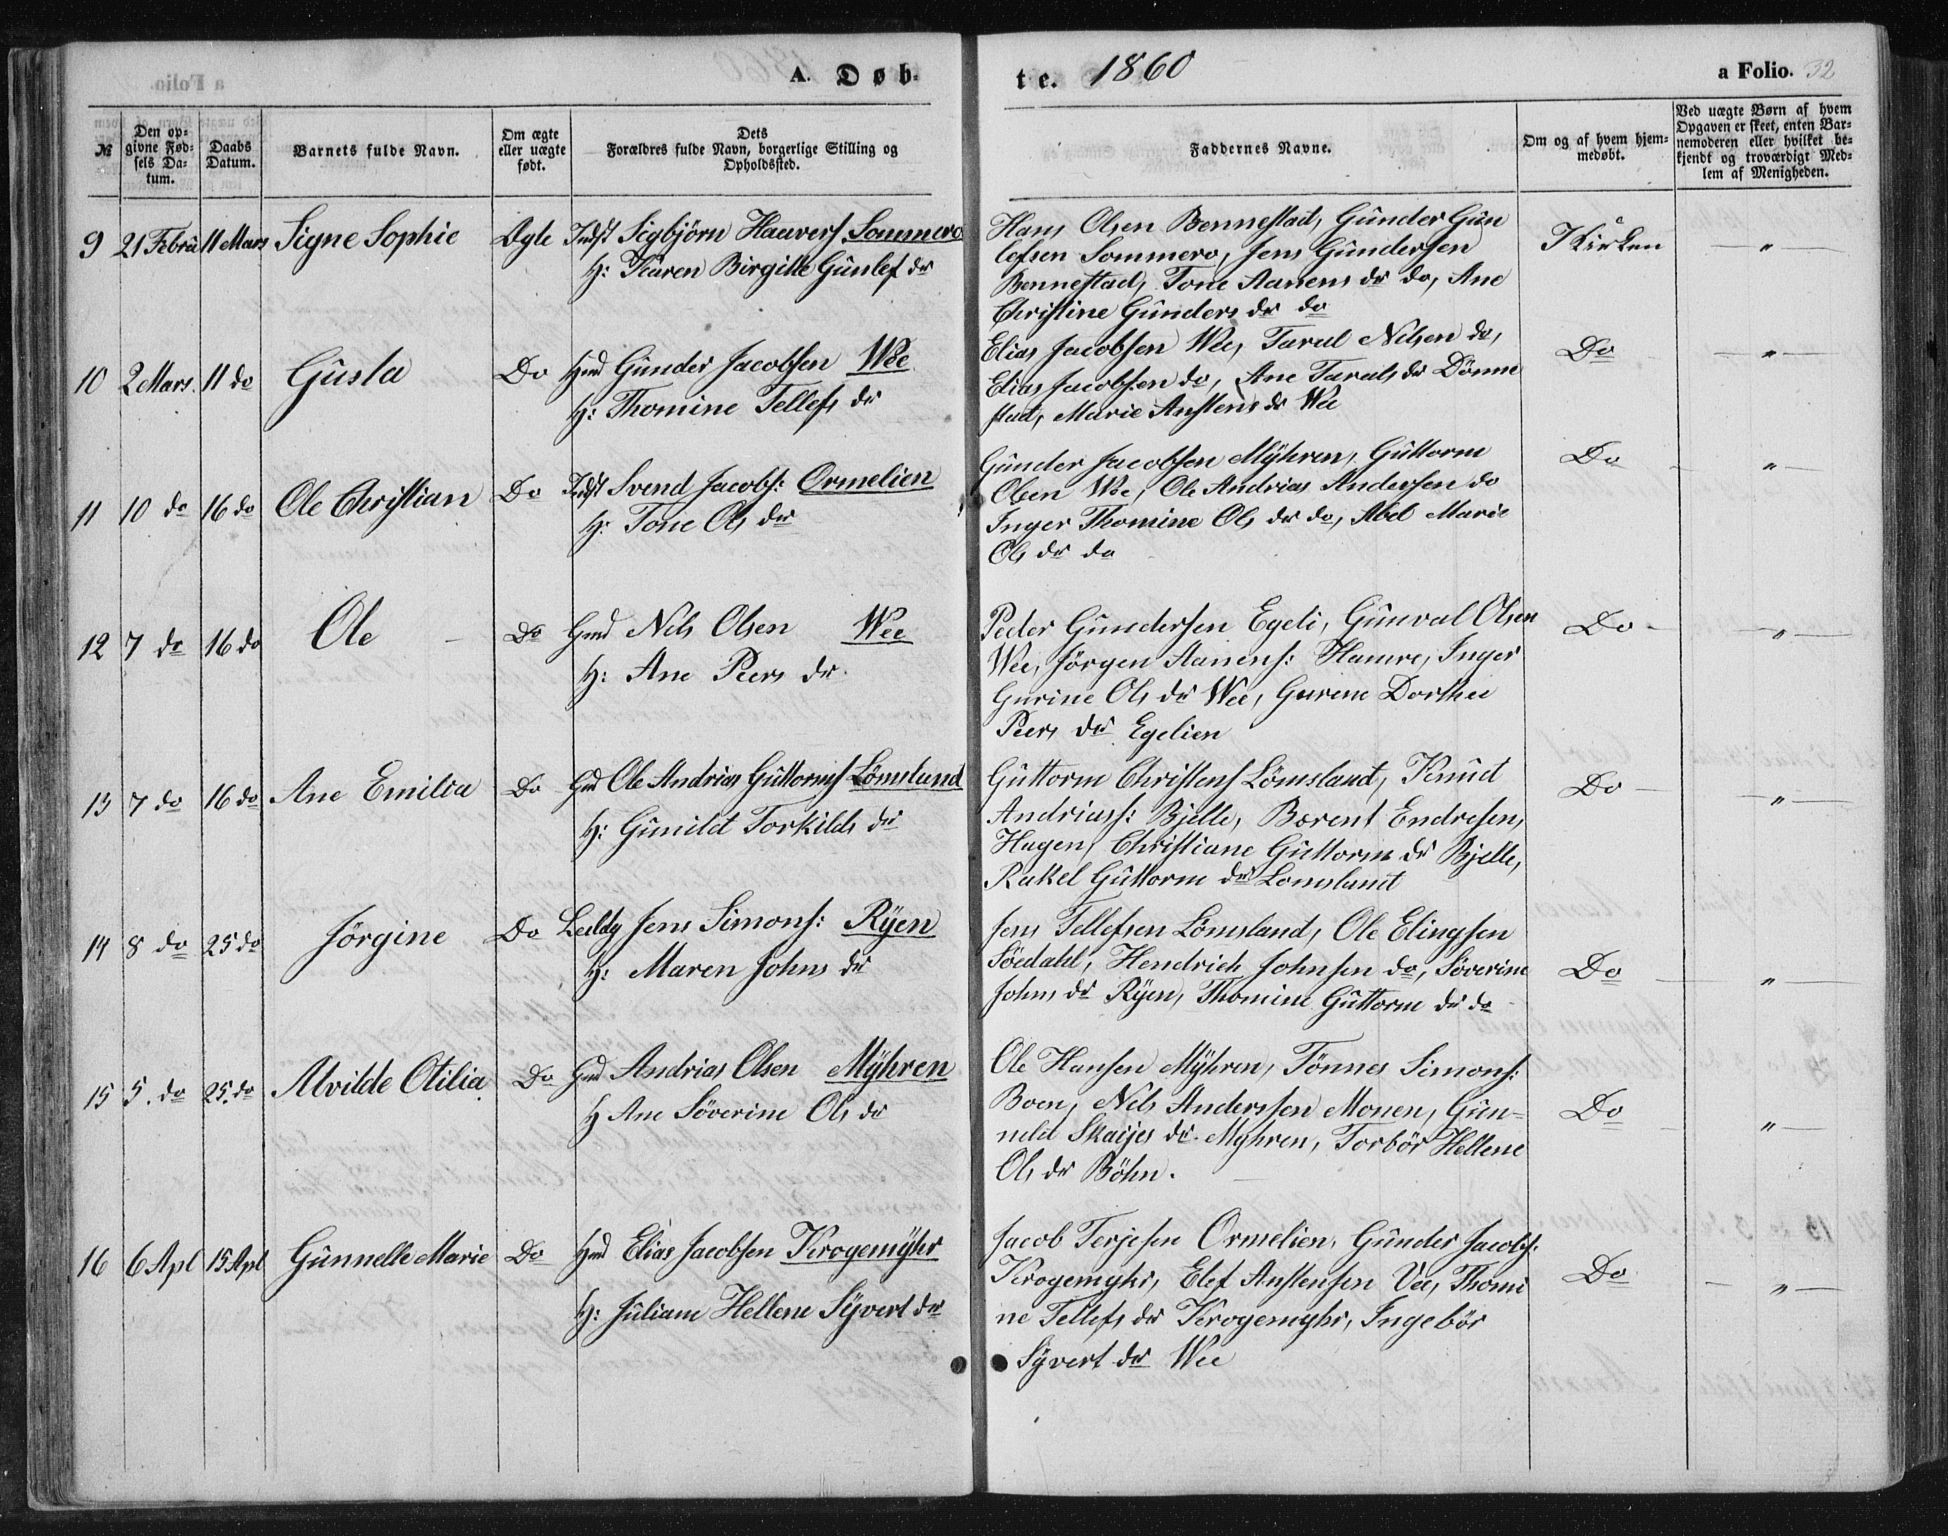 A. Døb-
te. 1860
a Folio. 32
№
Den op-
givne Fød-
sels Da-
tum.
Daabs
Datum.
Barnets fulde Navn.
Om ægte
eller uægte
født.
Dets
Forældres fulde Navn, borgerlige Stilling og
Opholdssted.
Faddernes Navne.
Om og af hvem hjem-
medøbt.
Ved uægte Børn af hvem
Opgaven er skeet, enten Bar-
nemoderen eller hvilket be-
kjendt og troværdigt Med-
lem af Menigheden.
9 21 Febru 11 Mars Signe Sophie Ægte Indst Sigbjörn Haavers Sommero
H: Karen Birgitte Gunlef dr
Hans Olsen Bennestad, Gunder Gun
lefsen Sommero, Jens Gundersen
Bennestad, Tone Aanens dr do, Ane
Christine Gunders dr do
I Kirken "
10 2 Mars. 11 do Gusta Do Hmd Gunder Jacobsen Wee
H: Thomine Tellefs dr
Elias Jacobsen Wee, Taral Nilsen do,
Elias Jacobsen do, Ane Tarals dr Dönne
stad, Marie Anstens dr Wee
Do "
11 10 do 16 do Ole Christian Do Indst Svend Jacobs: Ormelien
H: Tone Ols dr
Gunder Jacobsen Mÿhren, Guttorm
Olsen Wee, Ole Andrias Andersen do
Inger Thomine Ols dr do, Abel Marie
Ols dr do
Do "
12 7 do 16 do Ole Do Gmd Nils Olsen Wee
H: Ane Peers dr.
Peder Gundersen Egeli, Gunval Olsen
Wee, Jörgen Aanens: Hamre, Inger
Gurine Ols dr Wee, Gurene Dorthee
Peers dr Egelien
Do "
13 7 do 16 do Ane Emilia Do Gmd Ole Andrias Guttorms Lömsland
H: Gunild Torkilds dr
Guttorm Christens Lömsland, Knud
Andrias: Bjelle, Bærent Endresen,
Hagen, Christiane Guttorm dr Bjelle,
Rakel Guttorm dr Lomsland
Do "
14 8 do 25 do Jörgine Do Leildg Jens Simons: Rÿen
H: Maren Johns dr
Jens Tellefsen Lömsland, Ole Elingsen
Söedahl, Hendrich Johnsen do, Söverine
Johns dr Rÿen, Thomine Guttorm dr do
Do "
15 5. do 25. do Alvilde Otilia Do Gmd Andrias Olsen Mÿhren
H Ane Söverine Ols dr
Ole Hansen Mÿhren, Tönnes Simons:
Boen, Nils Andersen Monen, Gun-
neld Skaijes dr. Mÿhren, Torbör Hellene
Ols dr Böhn.
Do "
16 6 Apl 15 Apl Gunnelle Marie Do Hmd Elias Jacobsen Krogemÿhr
H: Juliane Hellene Sÿvert dr
Jacob Terjesen Ormelien, Gunder Jacobs:
Krogemyhr, Elef Anstensen Vee, Thomi
ne Tellefs dr Krogemyhr, Ingebör
Sÿvert dr Wee
Do "